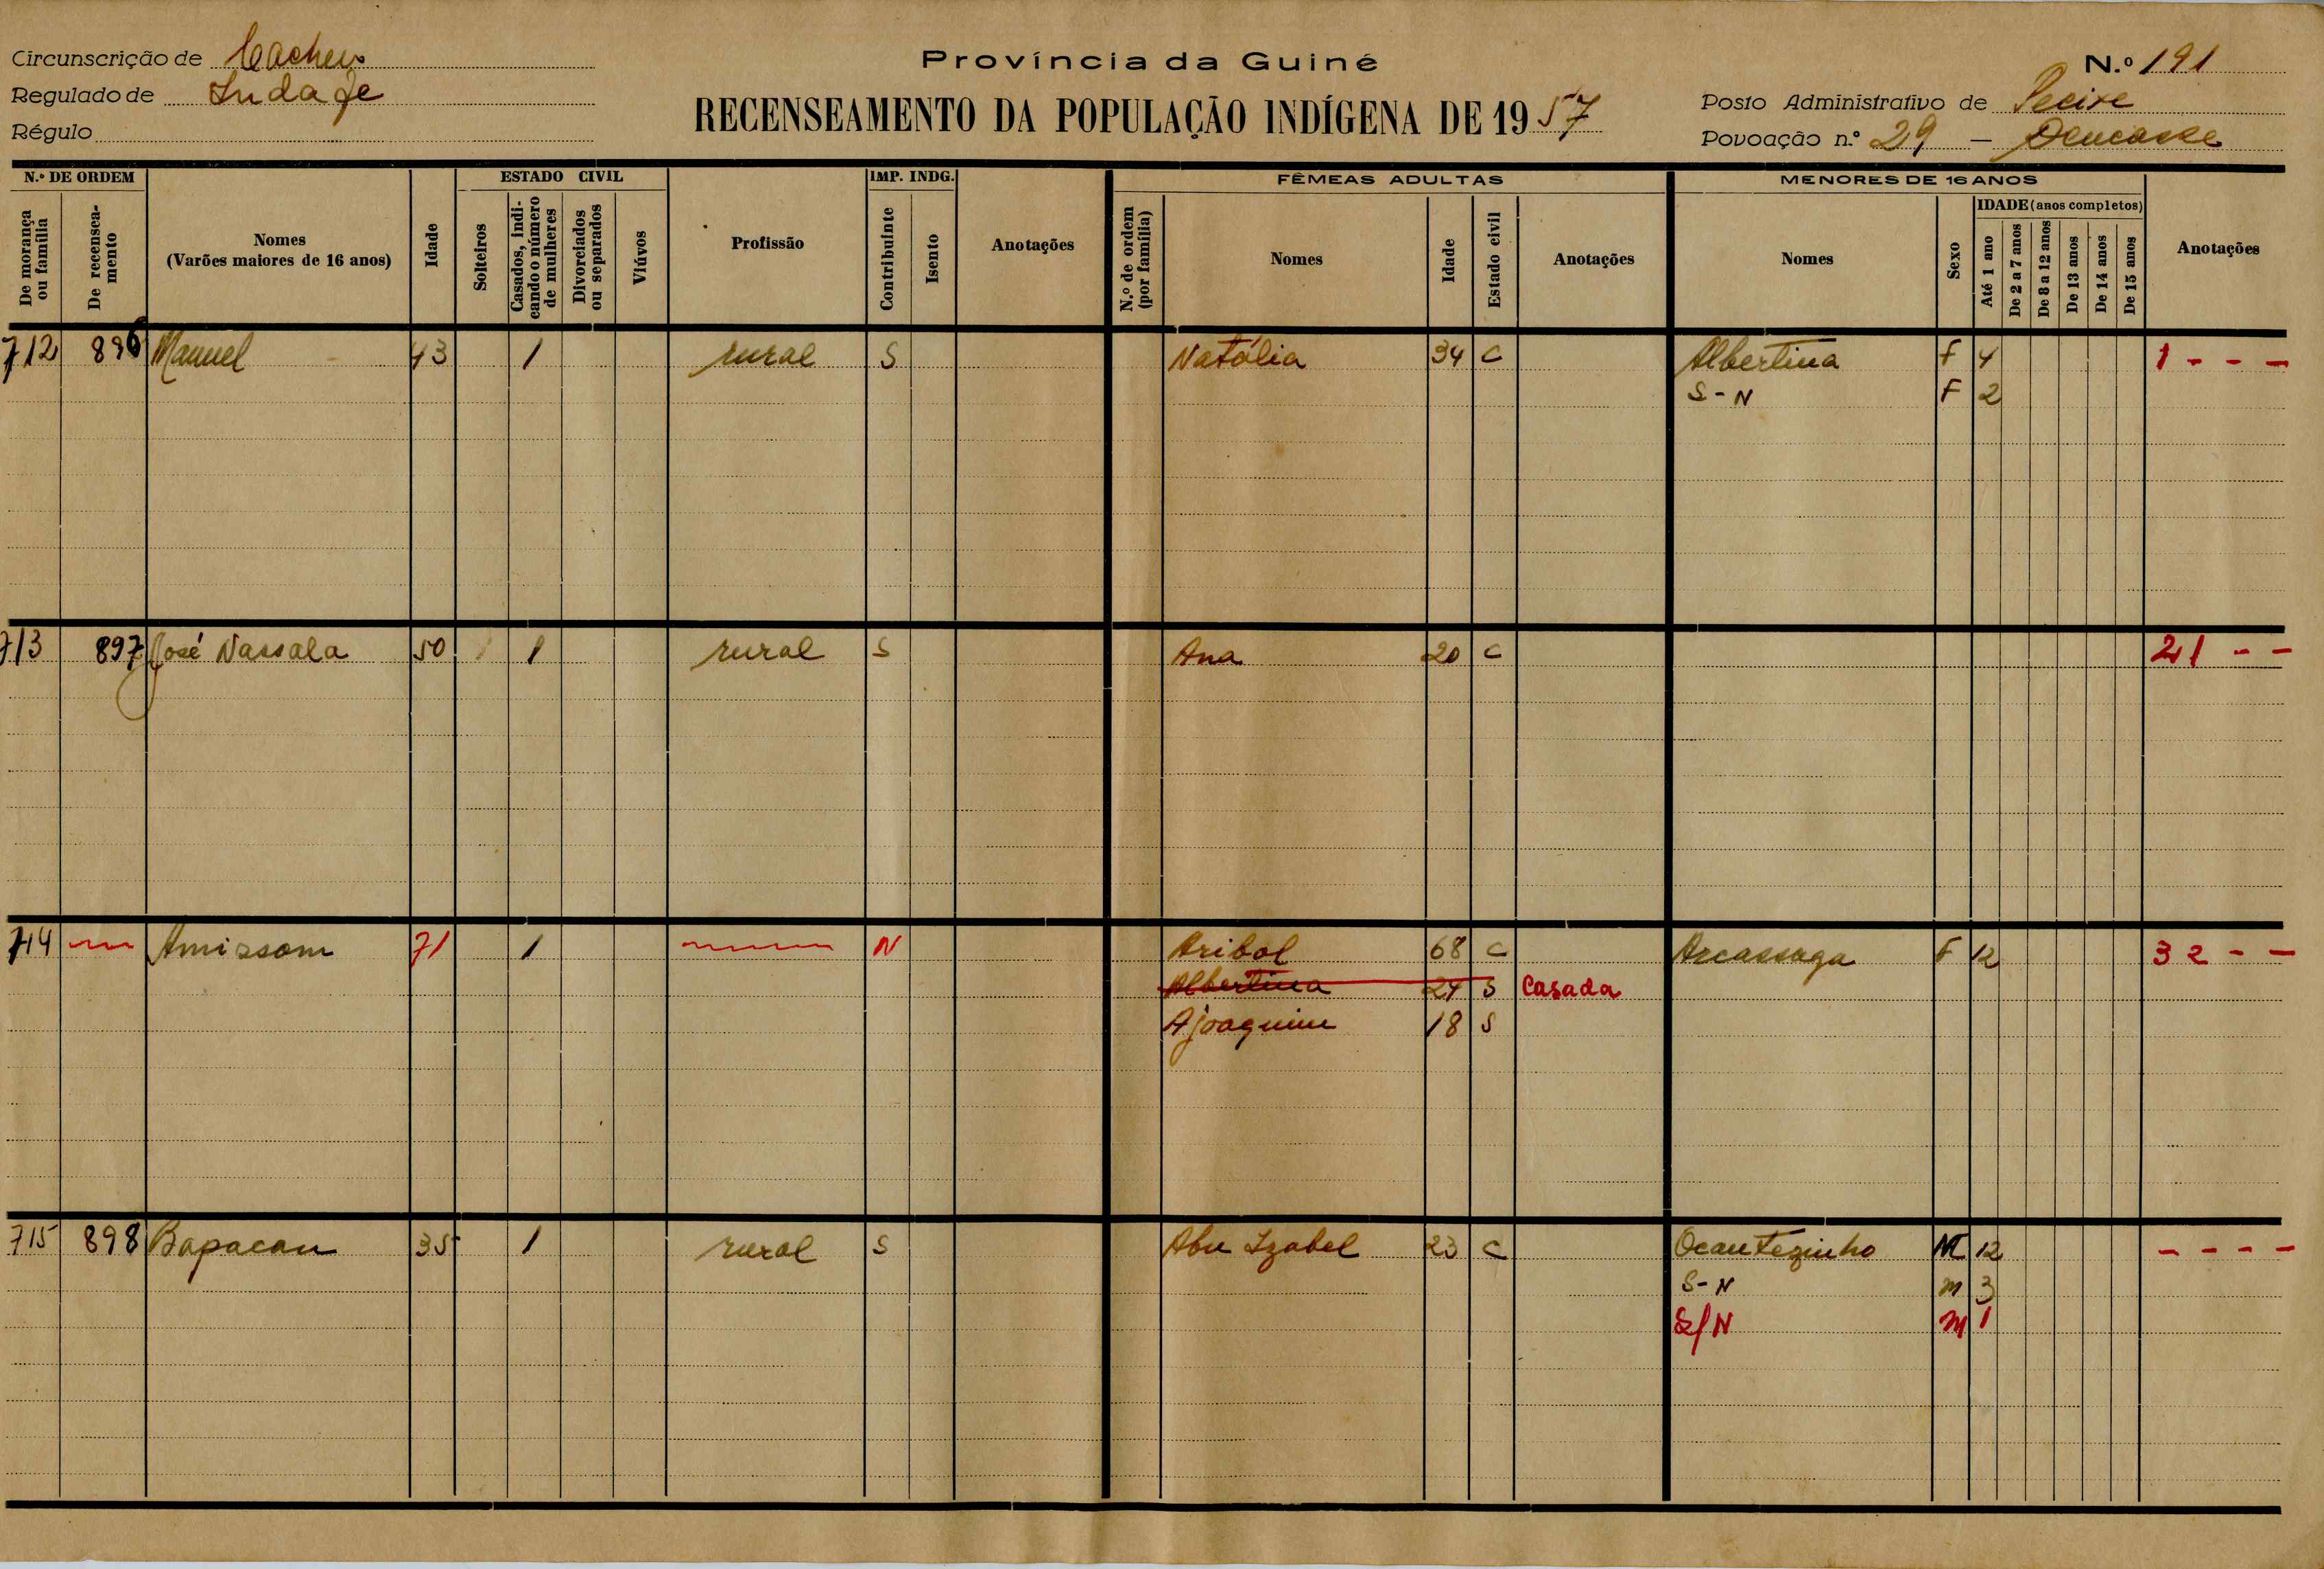 Província da Guiné
N.º 191
Circunscrição de Cacheu
Regulado de Indafe
Régulo
RECENSEAMENTO DA POPULAÇÃO INDÍGENA DE 1957
Posto Administrativo de Pecixe
Povoação n.º 29 –
N.º DE ORDEM
De morança ou família
De recenseamento
Nomes
(Varões maiores de 16 anos)
Idade
ESTADO CIVIL
Solteiros
Casados, indicando o número de mulheres
Divorciados ou separados
Viúvos
Profissão
IMP. INDG.
Contribuinte
Isento
Anotações
FÊMEAS ADULTAS
N.º de ordem (por família)
Nomes
Idade
Estado civil
Anotações
MENORES DE 16 ANOS
Nomes
Sexo
IDADE (anos completos)
Até 1 ano
De 2 a 7 anos
De 8 a 12 anos
De 13 anos
De 14 anos
De 15 anos
Anotações
712 896 Manuel 43 1 rural S Natália 34 C Albertina F 4 1 - - -
S-N F 2
713 897 José Nassala 50 1 rural S Ana 20 C 21 - -
714 Amissom 71 1 N Aribol 68 C Arcassaga F 12 32 - -
Albertina 24 S Casada
Ajoaquim 18 S
715 898 Bapacau 35 1 rural S Abu Izabel 23 C Ocautezinho M 12 - - - -
S-N m 3
S/N m 1